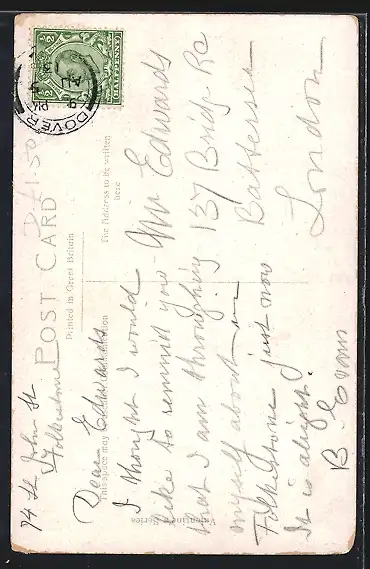 POST CARD
£1.50
Printed in Great Britain
This space may
The Address to be written
here
Valentine's Series
HALFPENNY
DOVER
74 St John St
Folkestone
Dear Edwards
I thought I would
like to remind you
that I am throughing
myself about in
Folkestone just now
It is alright.
B. Evans
Mr Edwards
137 Bridge Rd
Battersea
London